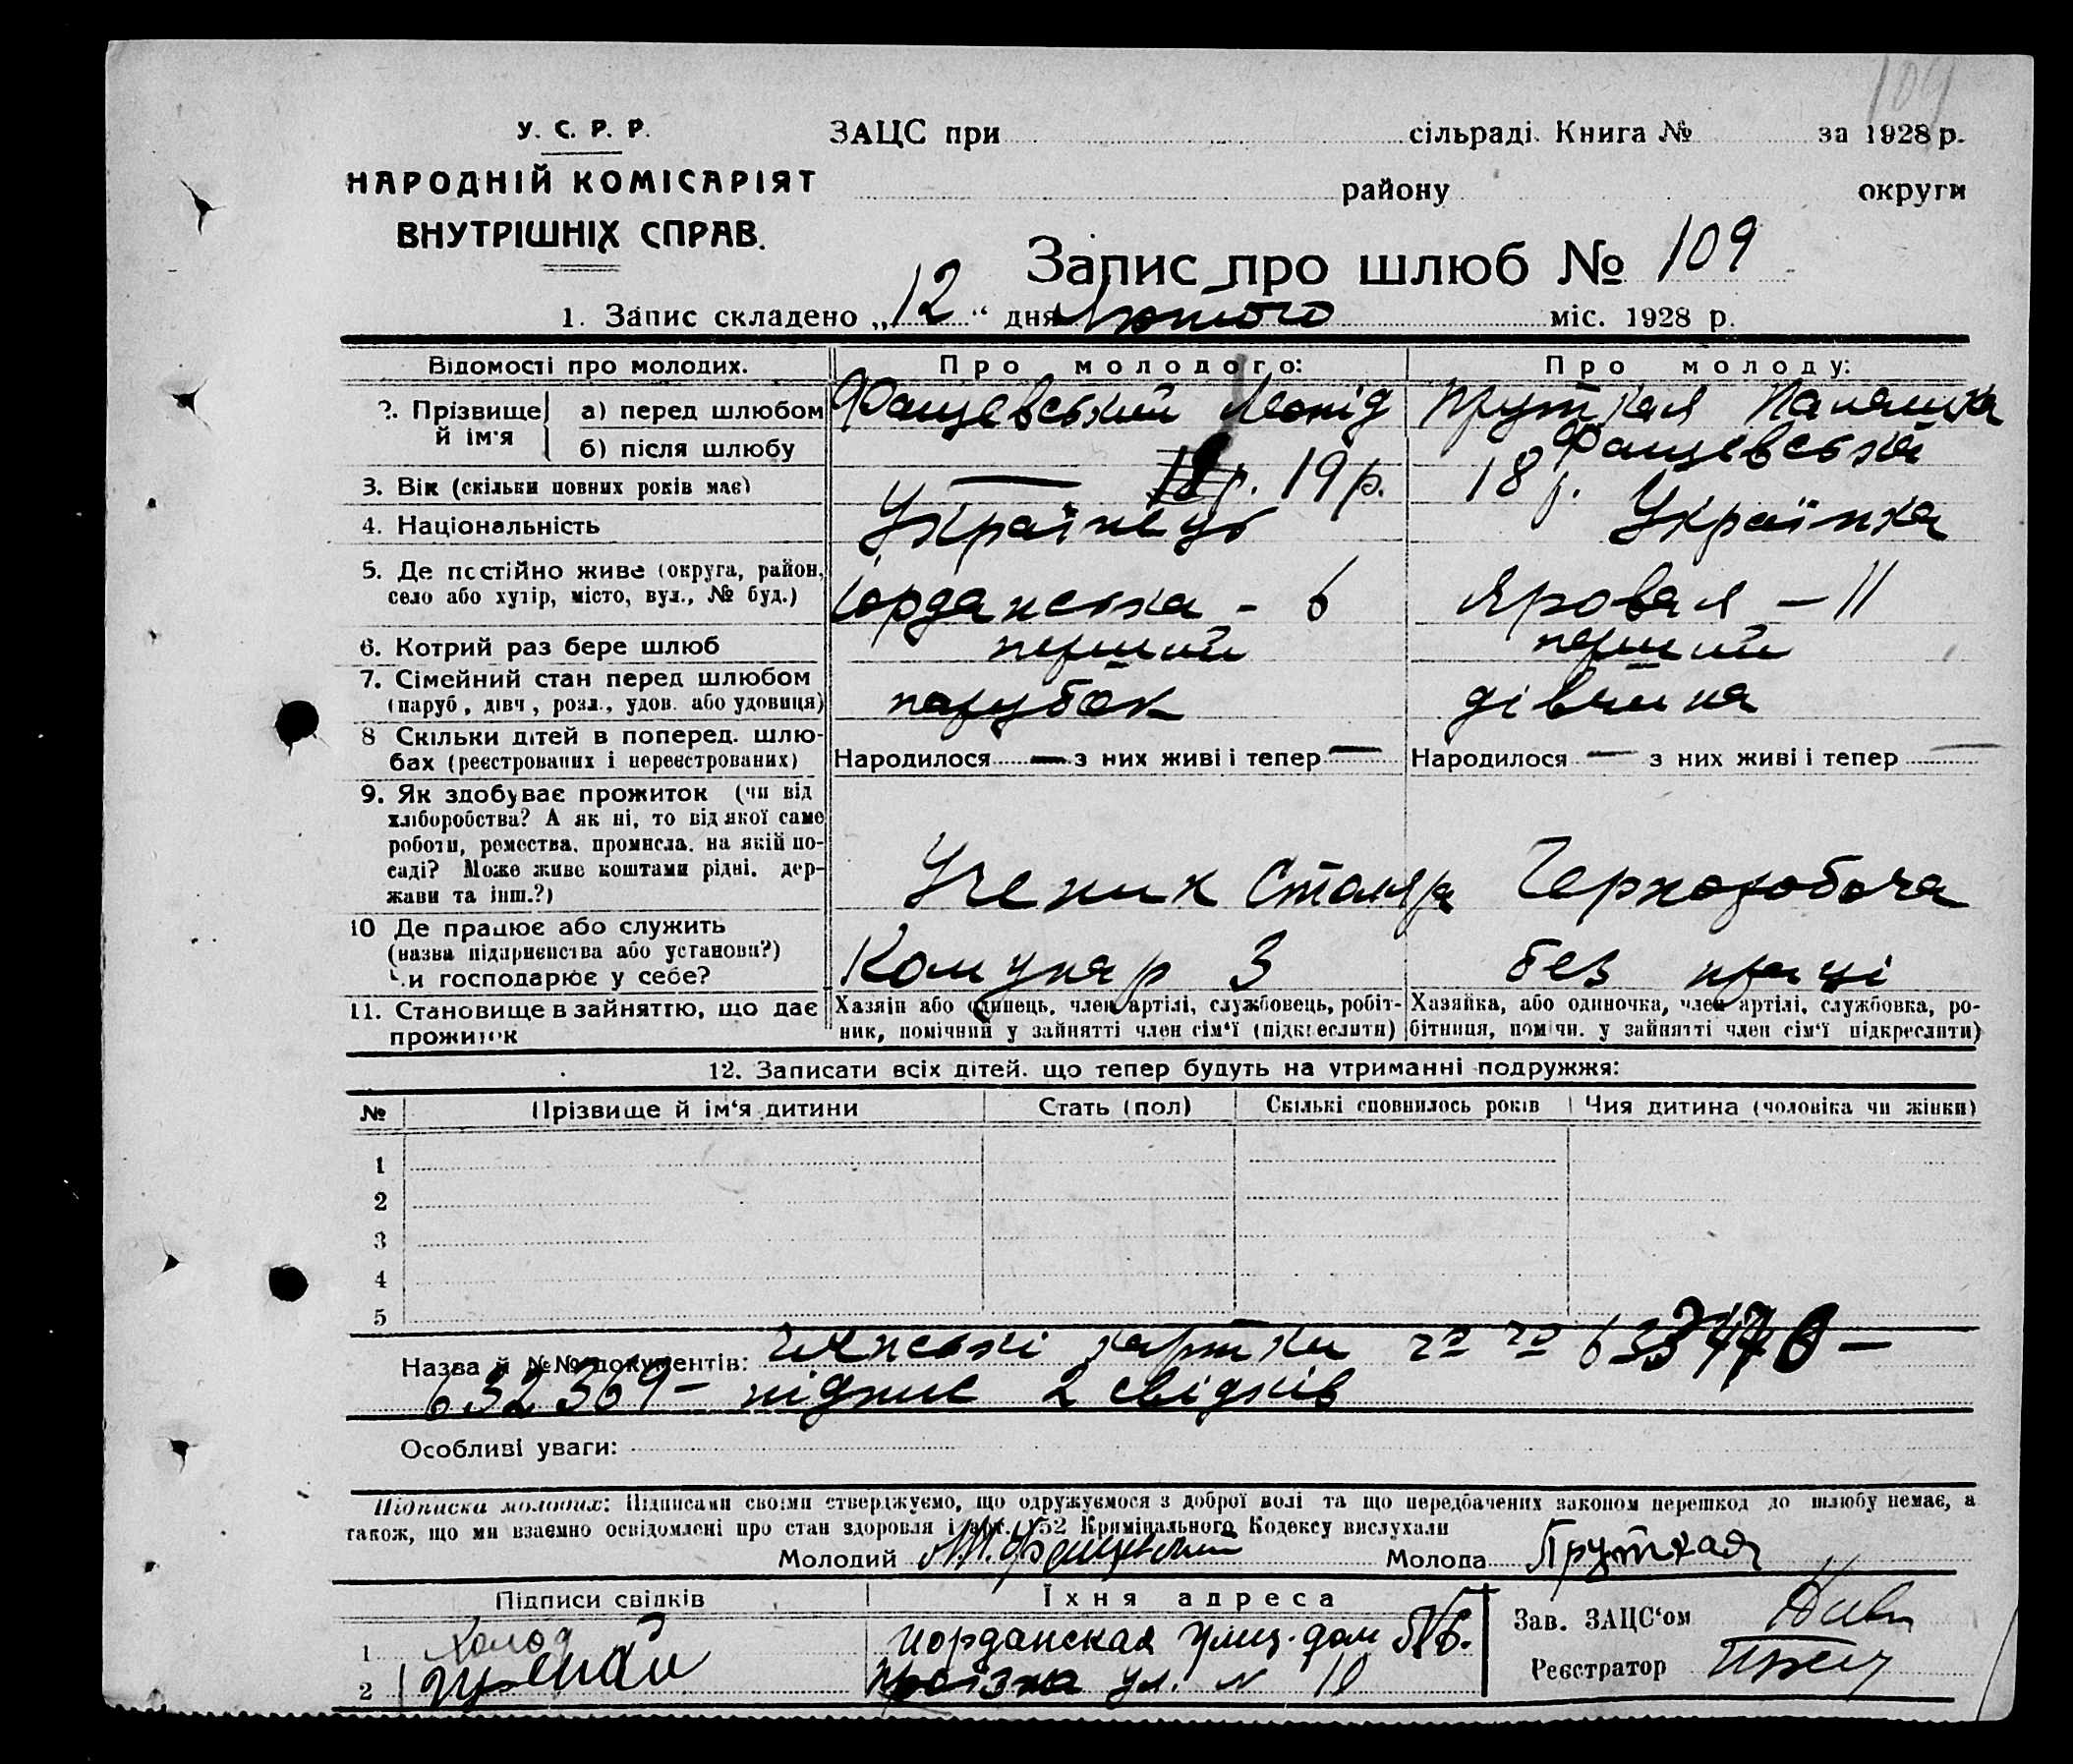 109
У. С. Р. Р.
НАРОДНІЙ КОМІСАРІЯТ
ВНУТРІШНІХ СПРАВ.
ЗАЦС при сільраді. Книга № за 1928 р.
району округи
Запис про шлюб № 109
1. Запис складено „12“ дня Лютого міс. 1928 р.
Відомості про молодих. Про молодого: Про молоду:
2. Прізвище й ім'я
а) перед шлюбом Фащевський Леонід Пруткая Палашка
б) після шлюбу — Фащевська
3. Вік (скільки повних років має) 19 р. 18 р.
4. Національність Українець Українка
5. Де постійно живе (округа, район, село або хутір, місто, вул., № буд.) Іорданська - 6 Яровая - 11
6. Котрий раз бере шлюб перший перший
7. Сімейний стан перед шлюбом (паруб, дівч, розл., удов. або удовиця) парубок дівчина
8 Скільки дітей в поперед. шлюбах (реєстрованих і нереєстрованих) Народилося — з них живі і тепер — Народилося — з них живі і тепер —
9. Як здобуває прожиток (чи від хліборобства? А як ні, то від якої саме роботи, ремества, промисла, на якій посаді? Може живе коштами рідні, держави та інш.?) Ученик Столяра Черноробоча
10 Де працює або служить (назва підприємства або установи?) Чи господарює у себе? Комунар 3 без праці
11. Становище в зайняттю, що дає прожиток
Хазяїн або одинець, член артілі, службовець, робітник, помічний у зайнятті член сім'ї (підкреслити)
Хазяйка, або одиночка, член артілі, службовка, робітниця, помічн. у зайнятті член сім'ї підкреслити)
12. Записати всіх дітей, що тепер будуть на утриманні подружжя:
№ Прізвище й ім'я дитини Стать (пол) Скількі сповнилось років Чия дитина (чоловіка чи жінки)
1
2
3
4
5
Назва й №№ документів: картки
632369 - підпис 2 свідків
Особливі уваги:
Підписка молодих: Підписами своїми стверджуємо, що одружуємося з доброї волі та що передбачених законом перешкод до шлюбу немає, а
також, що ми взаємно освідомлені про стан здоровля і арт. 152 Кримінального Кодексу вислухали
Молодий Фащевский Молода Пруткая
Підписи свідків Їхня адреса
1 Холод Иорданская улиц. дом №6.
2 ул. № 10
Зав. ЗАЦС'ом
Реєстратор